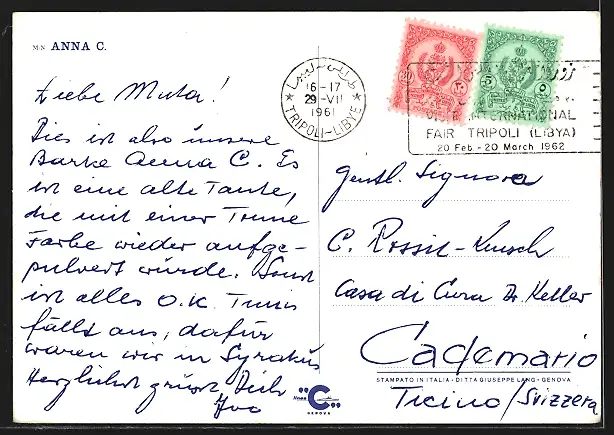 M/N ANNA C.
Liebe Muta!
Dies ist also unsere
Barke Anna C. Es
ist eine alte Tante,
die mit einer Tonne
Farbe wieder aufge-
pulvert wurde. Sonst
ist alles O.K. Tunis
fällt aus, dafür
waren wir in Syrakus
Herzlichst grüsst Dich
Ivo
طرابلس ليبيا
16-17
29-VII
1961
TRIPOLI-LIBYE
20
٢٠
5
٥
INTERNATIONAL
FAIR TRIPOLI (LIBYA)
20 Feb. - 20 March 1962
Gentl. Signora
C. Rossit-
Casa di Cura Dr. Keller
Cademario
STAMPATO IN ITALIA - DITTA GIUSEPPE LANG - GENOVA
Ticino/Svizzera
linea C
GENOVA